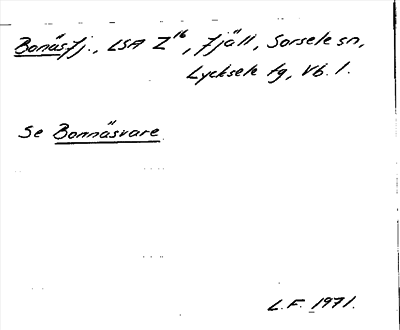 Bonäsfj., LSA Z¹⁶, fjäll, Sorsele sn,
Lycksele tg, Vb. l.
Se Bonnäsvare
L.F. 1971.